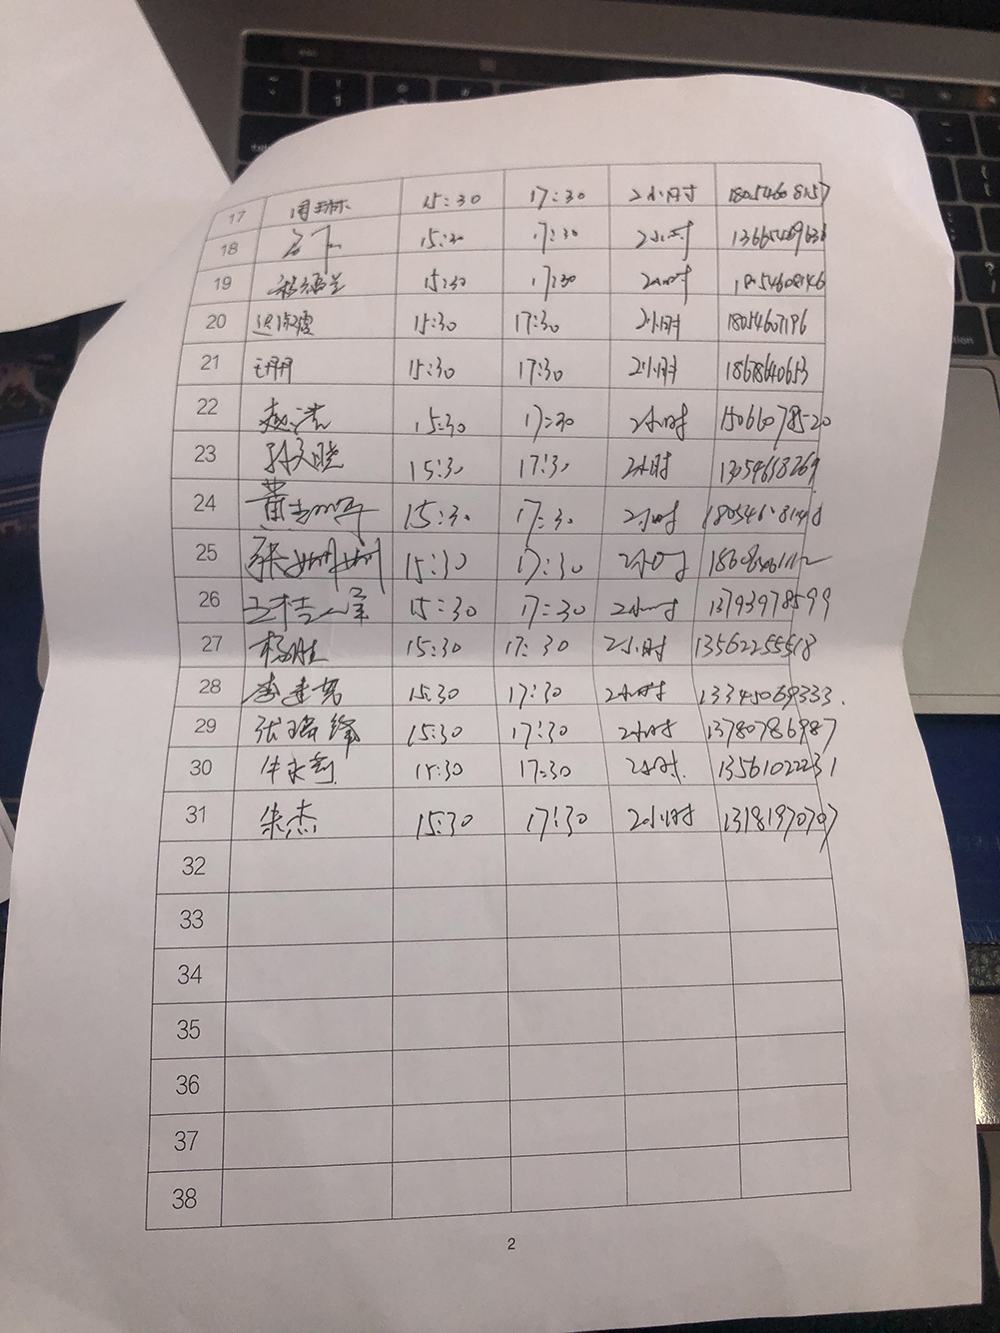 17 周琳 15:30 17:30 2小时 18054608157
18 15:30 17:30 2小时
19 15:30 17:30 2小时 18054608146
20 迟淑霞 15:30 17:30 2小时 18054607196
21 15:30 17:30 2小时 18678640653
22 赵浩 15:30 17:30 2小时 15066078520
23 孙文晓 15:30 17:30 2小时
24 15:30 17:30 2小时
25 张姗姗 15:30 17:30 2小时
26 王桂峰 15:30 17:30 2小时 13793978599
27 杨胜 15:30 17:30 2小时 13562255518
28 李建 15:30 17:30 2小时 13345069333.
29 张瑞锋 15:30 17:30 2小时 13780786987
30 牛永 15:30 17:30 2小时. 13561022231
31 朱杰 15:30 17:30 2小时 13181970707
32
33
34
35
36
37
38
2